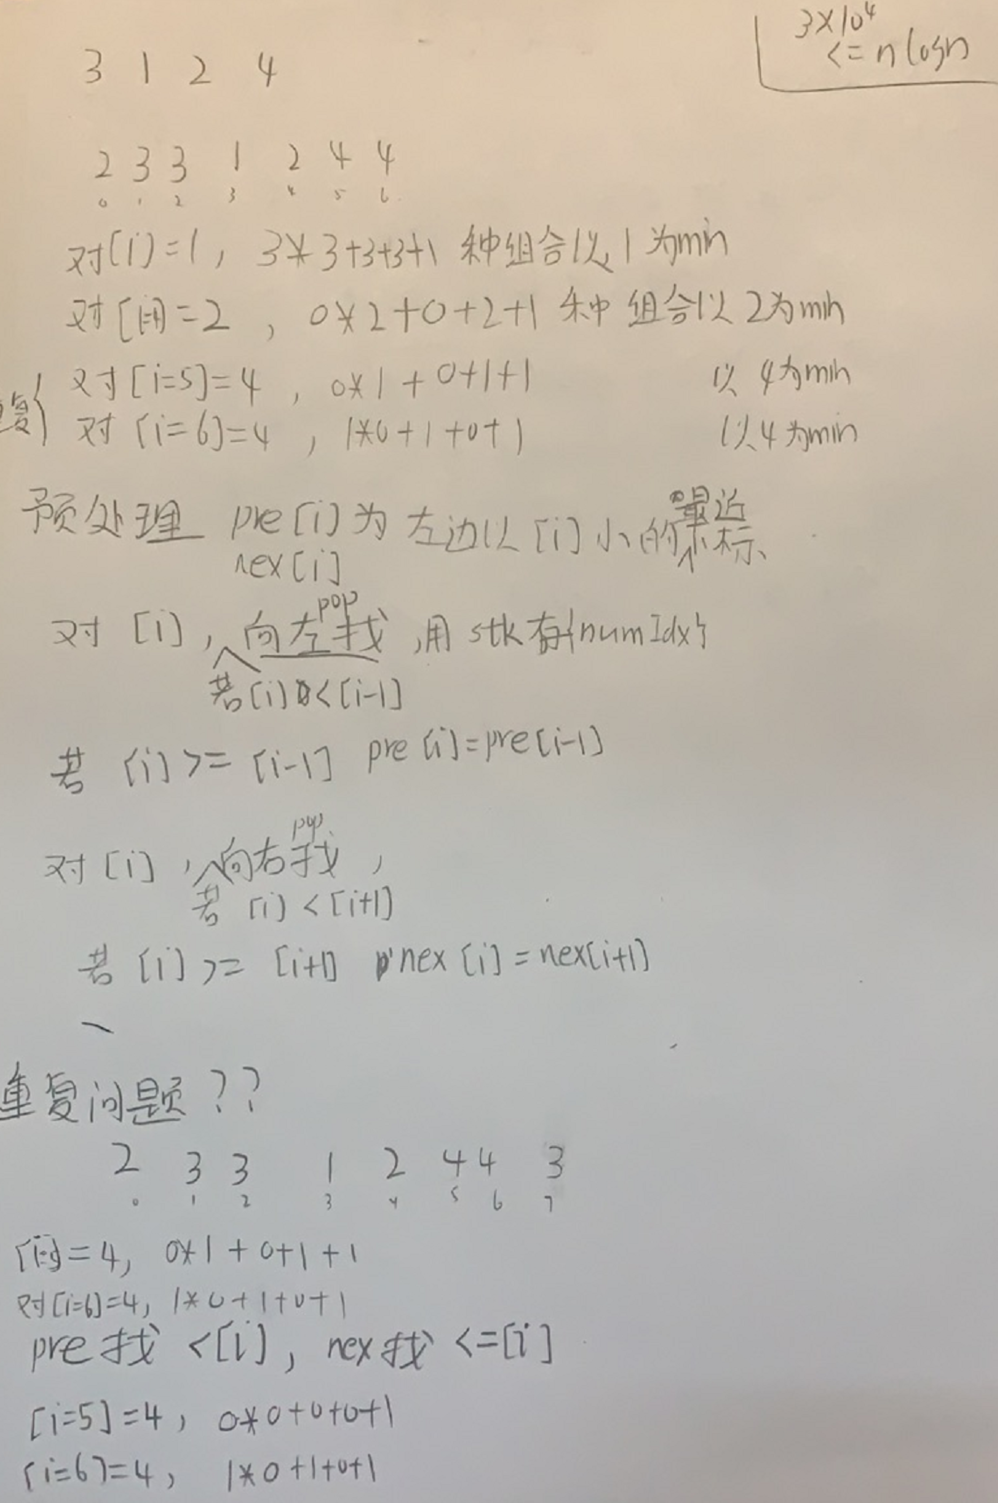 3×10⁴
<= n logn
3 1 2 4
2 3 3 1 2 4 4
0 1 2 3 4 5 6
对[i]=1, 3*3+3+3+1 种组合以1为min
对[i=4]=2, 0*2+0+2+1 种组合以2为min
对[i=5]=4, 0*1+0+1+1 以4为min
复{ 对[i=6]=4, 1*0+1+0+1 以4为min
预处理 pre[i]为左边以[i]小的最近下标、
nex[i]
对[i], 向左找pop, 用stk存{num Idx}
若[i]<[i-1]
若[i]>=[i-1] pre[i]=pre[i-1]
对[i], 向右找pop,
若[i]<[i+1]
若[i]>=[i+1] nex[i]=nex[i+1]
重复问题??
2 3 3 1 2 4 4 3
0 1 2 3 4 5 6 7
=4, 0*1+0+1+1
对[i=6]=4, 1*0+1+0+1
pre找<[i], nex找<=[i]
[i=5]=4, 0*0+0+0+1
[i=6]=4, 1*0+1+0+1